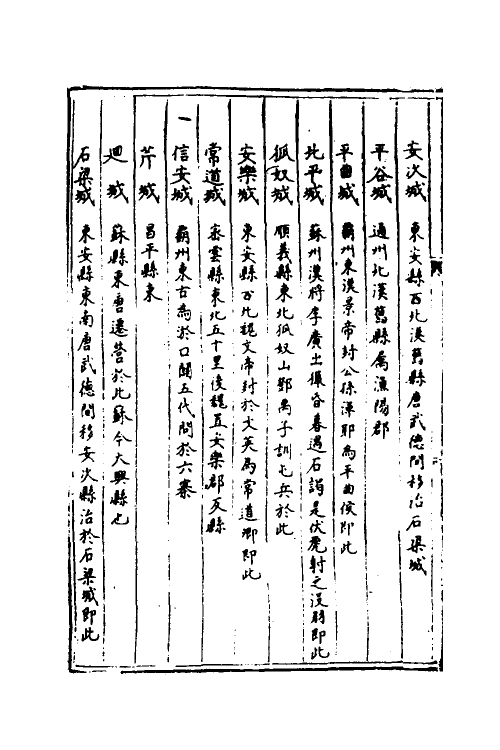 安次城　東安縣西北漢舊縣唐武德間移治石梁城
平谷城　通州北漢舊縣屬漁陽郡
平曲城　霸州東漢景帝封公孫渾耶為平曲侯即此
北平城　蘇州漢將李廣出獵昏暮遇石謂是伏虎射之沒羽即此
狐奴城　順義縣東北狐奴山鄧禹子訓屯兵於此
安樂城　東安縣西北魏文帝封於文英為常道鄉即此
常道城　密雲縣東北五十里後魏置安樂郡及縣
信安城　霸州東古為淤口關五代間於六寨
芹城　昌平縣東
廻城　蘇縣東唐遷營於此蘇今大興縣也
石梁城　東安縣東南唐武德間移安次縣治於石梁城即此